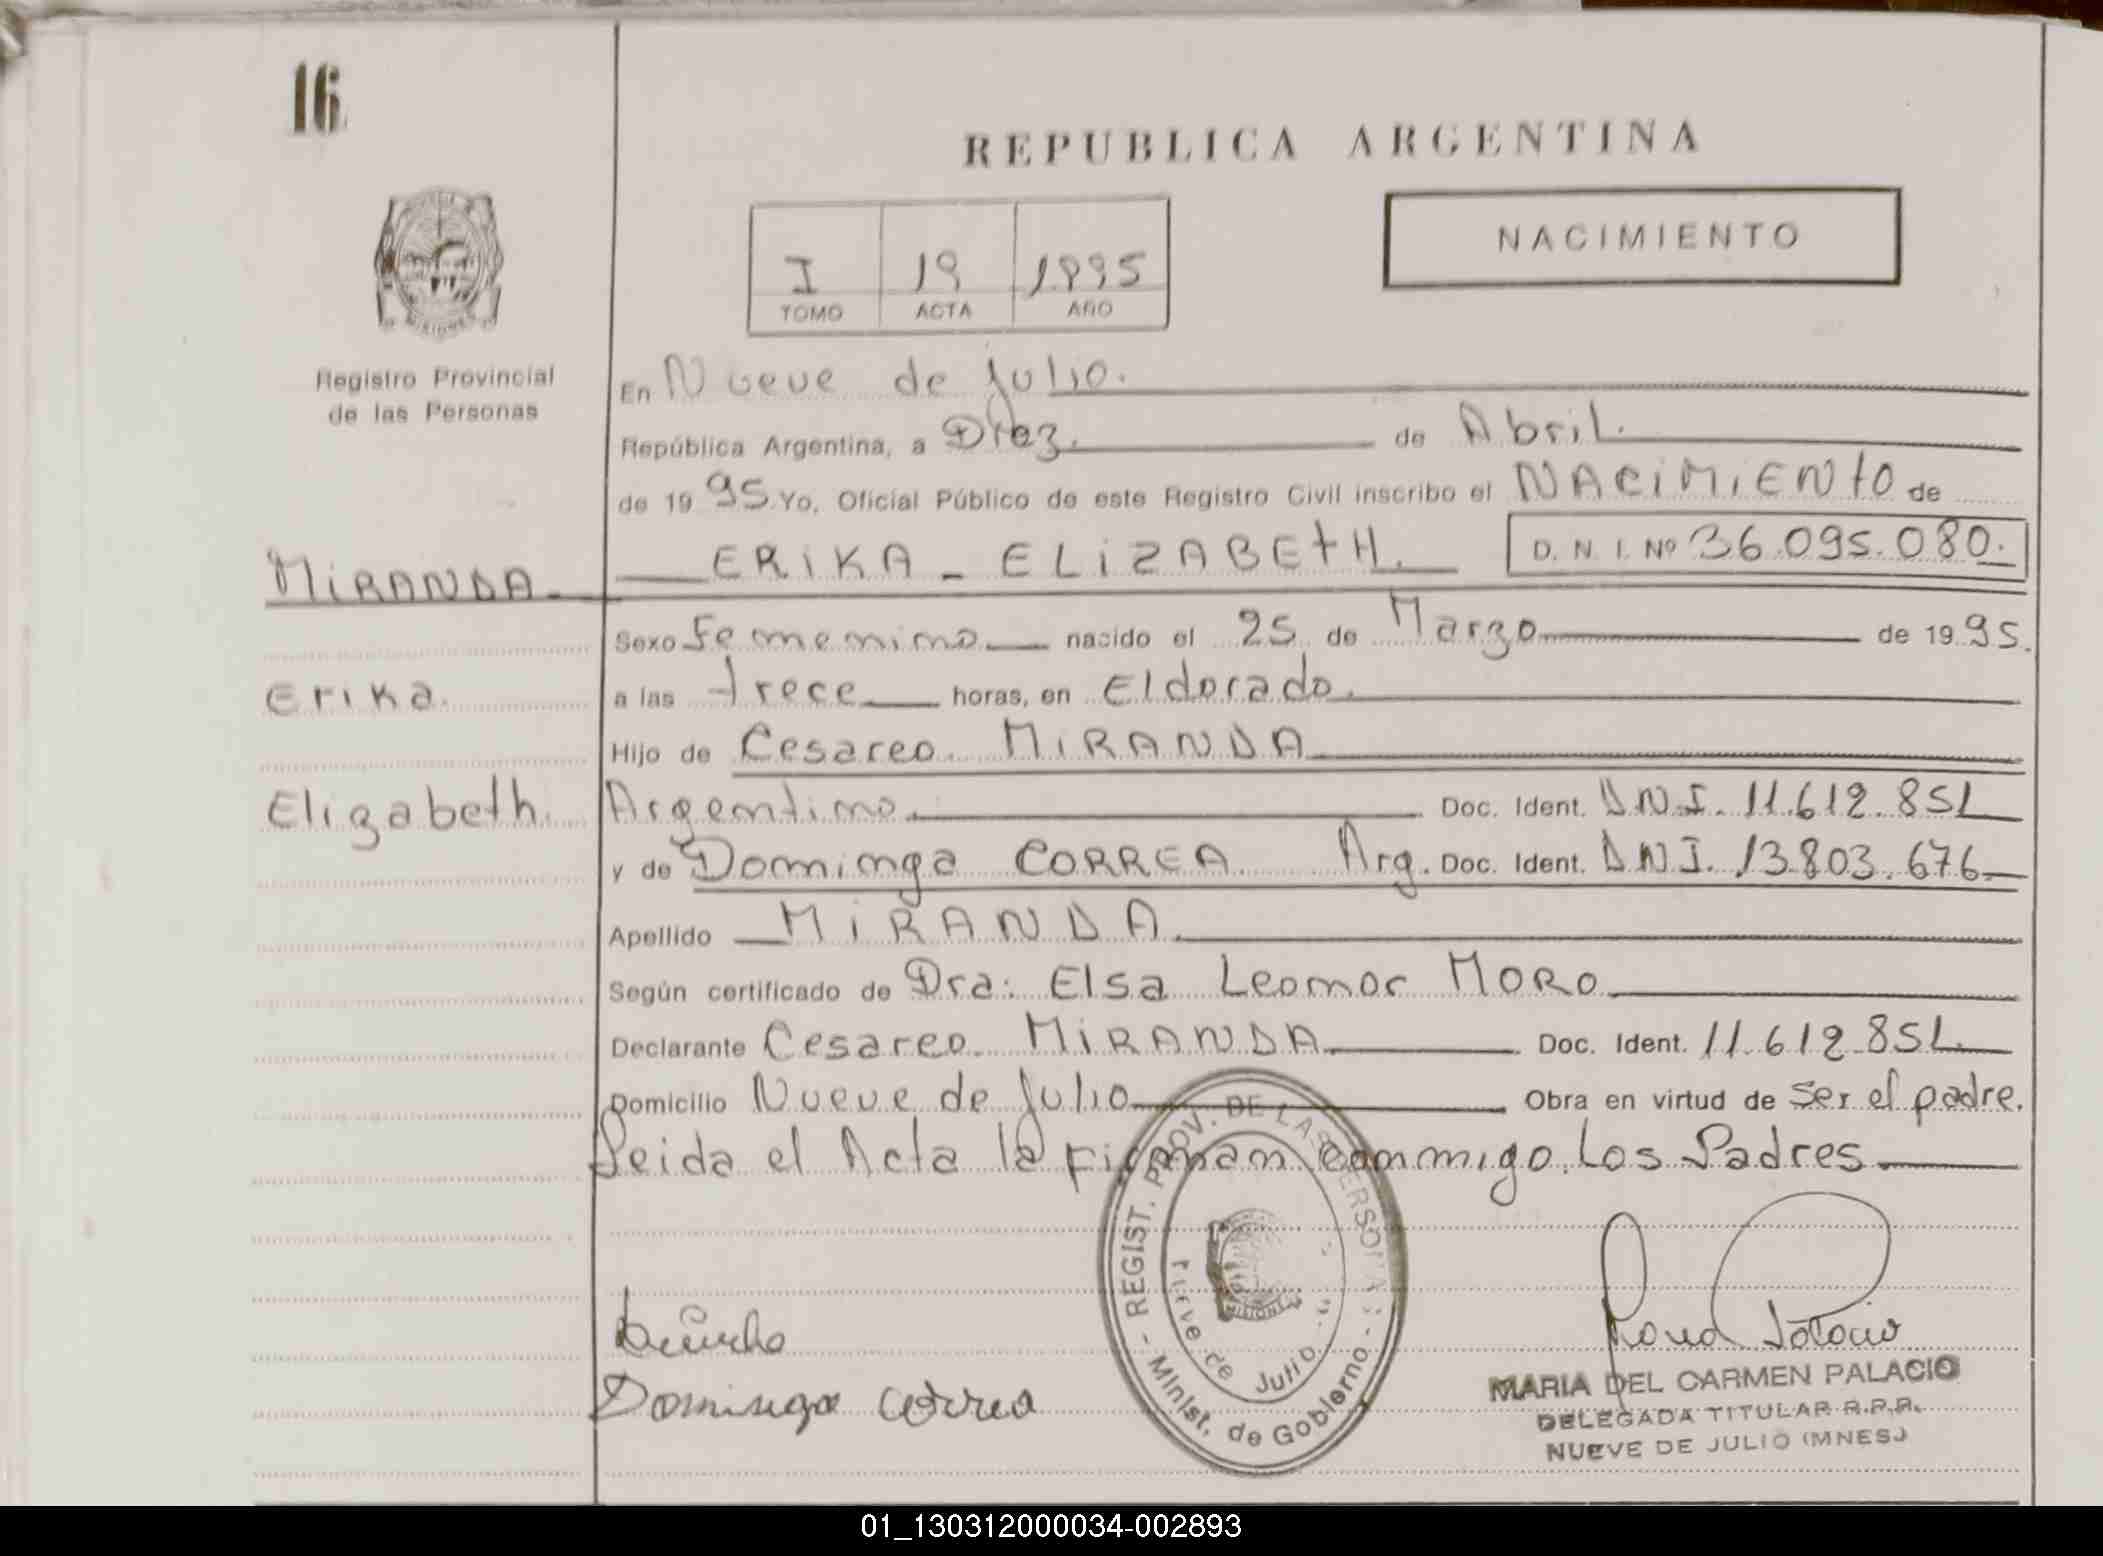 16
REPUBLICA ARGENTINA
NACIMIENTO
I 19 1995
TOMO ACTA AÑO
MISIONES
Registro Provincial
de las Personas
En Nueve de Julio.
República Argentina, a Diez. de Abril.
de 1995 Yo, Oficial Público de este Registro Civil inscribo el NACIMIENTO de
MIRANDA ERIKA - ELIZABETH. D. N. I. Nº 36.095.080.
Sexo Femenino nacido el 25 de Marzo de 1995.
Erika a las trece horas, en Eldorado.
Hijo de Cesareo MIRANDA
Elizabeth. Argentino Doc. Ident. D.N.I. 11.612.851
y de Dominga CORREA Arg. Doc. Ident. D.N.I. 13.803.676
Apellido MIRANDA.
Según certificado de Dra: Elsa Leonor MORO
Declarante Cesareo MIRANDA Doc. Ident. 11.612.851
Domicilio Nueve de Julio Obra en virtud de ser el padre.
Leida el Acta la Firman conmigo Los Padres
- REGIST. PROV. DE LAS PERSONAS - Minist. de Gobierno -
Nueve de Julio
MISIONES
Dominga Correa
MARIA DEL CARMEN PALACIO
DELEGADA TITULAR R.P.P.
NUEVE DE JULIO (MNES.)
01_130312000034-002893